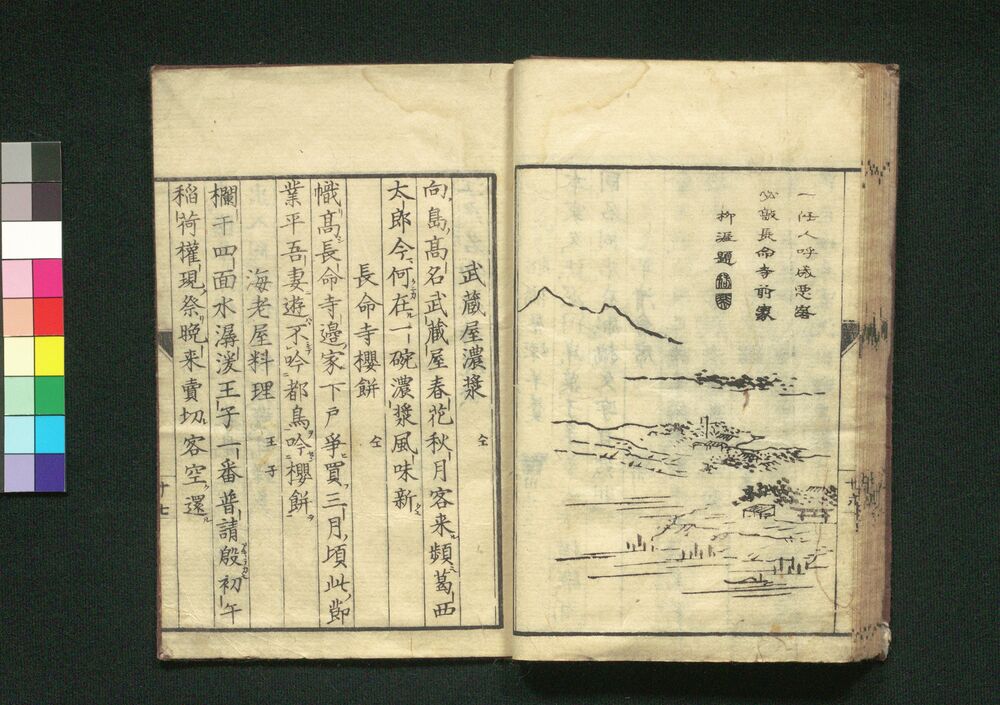 一任人呼成悪客
必敲長命寺前家
柳涯題
武蔵屋濃漿 仝
向島高名武蔵屋春花秋月客来頻葛西
太郎今何在一碗濃漿風味新
長命寺櫻餅 仝
幟高長命寺邊家下戸爭買三月頃此節
業平吾妻遊不吟都鳥吟櫻餅
海老屋料理 王子
欄干四面水潺湲王子一番普請殷初午
稲荷權現祭晩来賣切客空還
十七